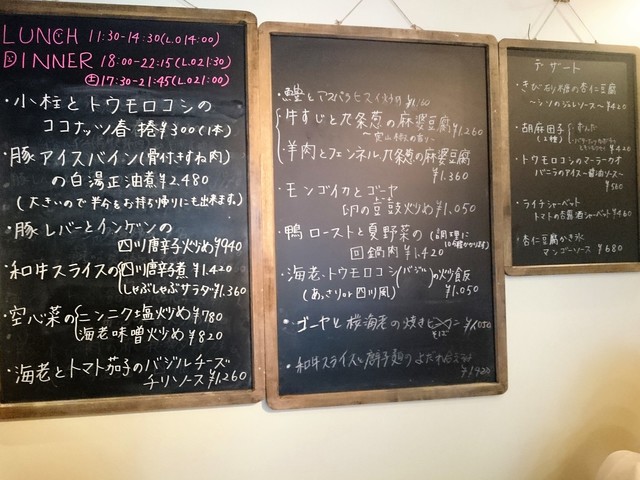 LUNCH 11:30-14:30(L.O14:00)
DINNER 18:00-22:15(L.O21:30)
㊏17:30-21:45(L.O21:00)
・小柱とトウモロコシの
ココナッツ春捲¥300(1本)
・豚アイスバイン(骨付きすね肉)
の白湯正油煮¥2.480
(大きいので半分をお持ち帰りにも出来ます。)
・豚レバーとインゲンの
四川唐辛子炒め¥940
・和牛スライスの四川唐辛子煮¥1.420
しゃぶしゃぶサラダ¥1.360
・空心菜のニンニク塩炒め¥780
海老味噌炒め¥820
・海老とトマト茄子のバジルチーズ
チリソース¥1.260
・鱧とアスパラ
牛すじと九条葱の麻婆豆腐¥1.260
羊肉とフェンネル九条葱の麻婆豆腐
¥1.360
・モンゴイカとゴーヤ
の豆豉炒め¥1.050
・鴨ローストと夏野菜の(調理に
10分程かかります)
回鍋肉¥1.420
・海老・トウモロコシ(バジル)の炒飯
(あっさりor四川風)¥1.050
・ゴーヤと桜海老の焼きビーフン¥1050
・和牛スライスと
¥1420
デザート
・きび砂糖の杏仁豆腐
～シソのジュレソース～¥420
・胡麻団子
(2種)
・トウモロコシのマーラーカオ
バニラのアイス～醤油ソース～
¥580
・ライチシャーベット
トマトの古酒ソース¥460
・杏仁豆腐かき氷
マンゴーソース¥680